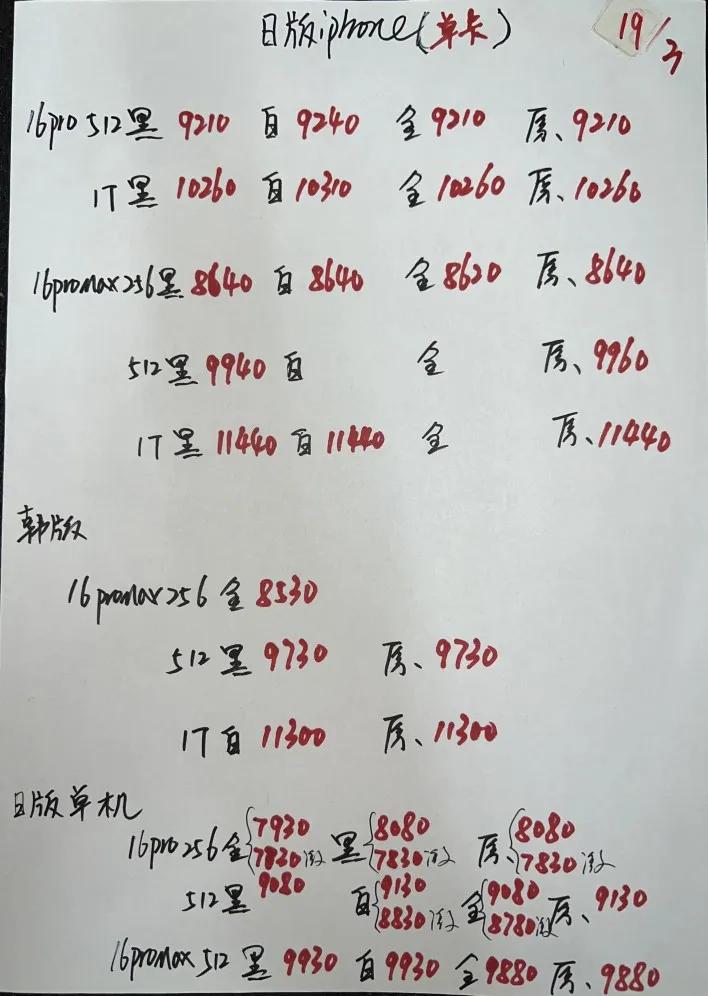 日版iphone(单卡) 19/3
16pro 512黑 9210 白 9240 金 9210 原、9210
1T黑 10260 白 10310 金 10260 原、10260
16promax256黑 8640 白 8640 金 8620 原、8640
512黑 9940 白 金 原、9960
1T黑 11440 白 11440 金 原、11440
韩版
16promax256 金 8530
512黑 9730 原、9730
1T白 11300 原、11300
日版单机
16pro256金 7930 7830激 黑 8080 7830激 原、8080 7830激
512黑 9080 白 9130 8830激 金 9080 8780激 原、9130
16promax512 黑 9930 白 9930 金 9880 原、9880